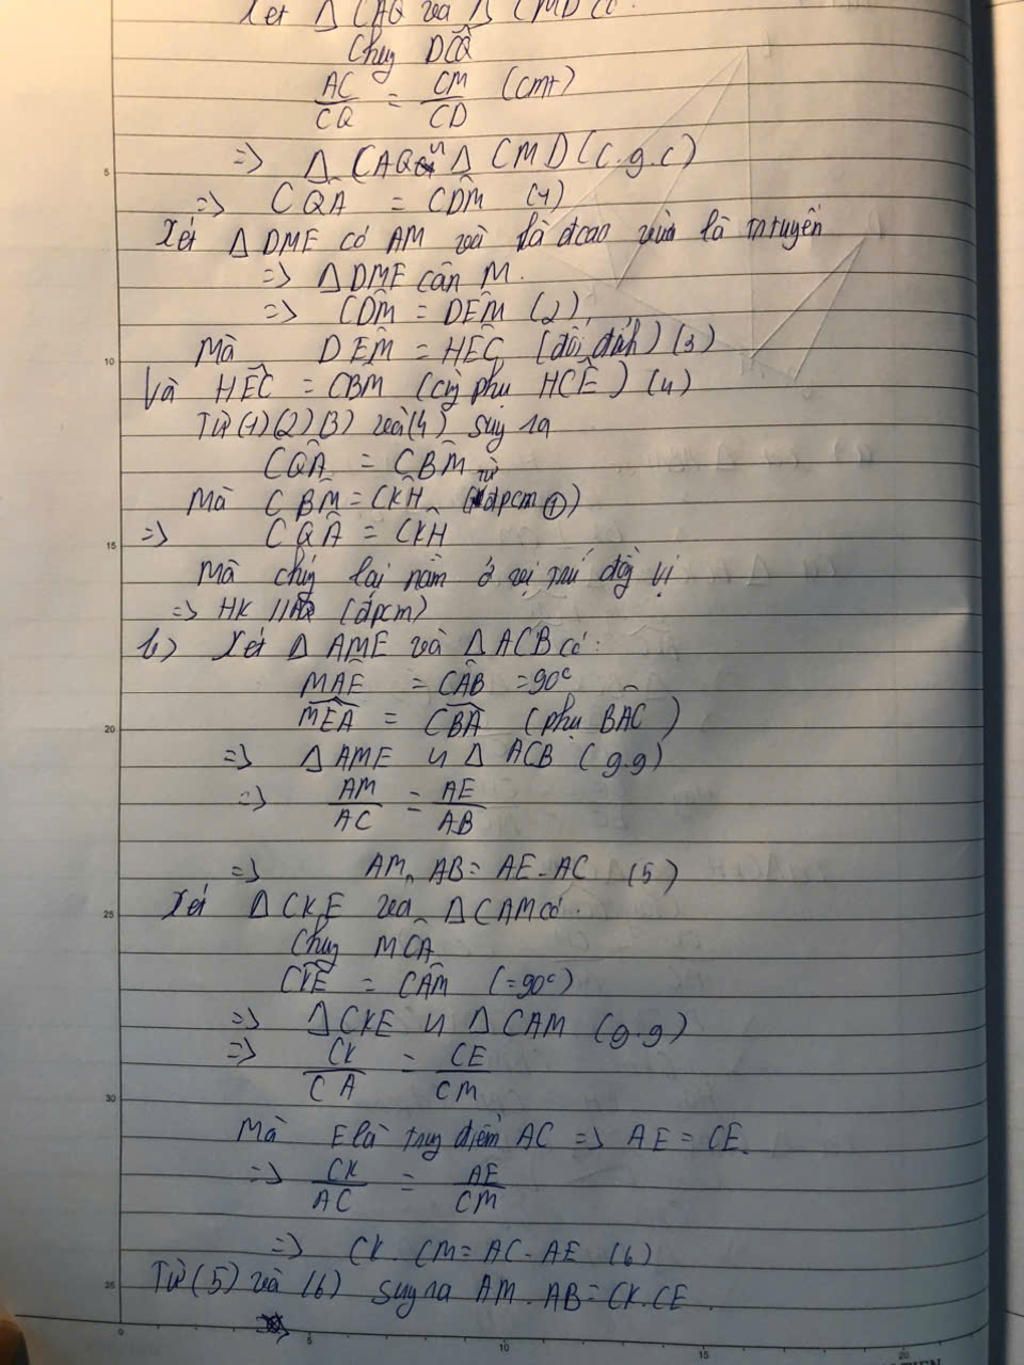 Xét Δ CAQ và Δ CMD có:
Chung DCQ̂
AC/CQ = CM/CD (cmt)
=> Δ CAQ ᔕ Δ CMD (c.g.c)
=> CQ̂A = CD̂M (1)
Xét Δ DME có AM vừa là đcao vừa là trtuyến
=> Δ DME cân M.
=> CD̂M = DÊM (2)
Mà DÊM = HÊC (đối đỉnh) (3)
Và HÊC = CB̂M (cg phụ HCÊ) (4)
Từ (1) (2) (3) và (4) suy ra
CQ̂A = CB̂M
Mà CB̂M = CK̂H (từ đpcm ①)
=> CQ̂A = CK̂H
Mà chúng lại nằm ở vị trí đồng vị
=> HK // AQ (đpcm)
b) Xét Δ AME và Δ ACB có:
MÂE = CÂB = 90°
MÊA = CB̂A (phụ BÂC)
=> Δ AME ᔕ Δ ACB (g.g)
=> AM/AC = AE/AB
=> AM. AB = AE. AC (5)
Xét Δ CKE và Δ CAM có.
Chung MĈA
CK̂E = CÂM (= 90°)
=> Δ CKE ᔕ Δ CAM (g.g)
=> CK/CA = CE/CM
Mà E là trung điểm AC => AE = CE.
=> CK/AC = AE/CM
=> CK. CM = AC. AE (6)
Từ (5) và (6) suy ra AM. AB = CK. CE.
5
10
15
20
25
30
35
0 5 10 15 20